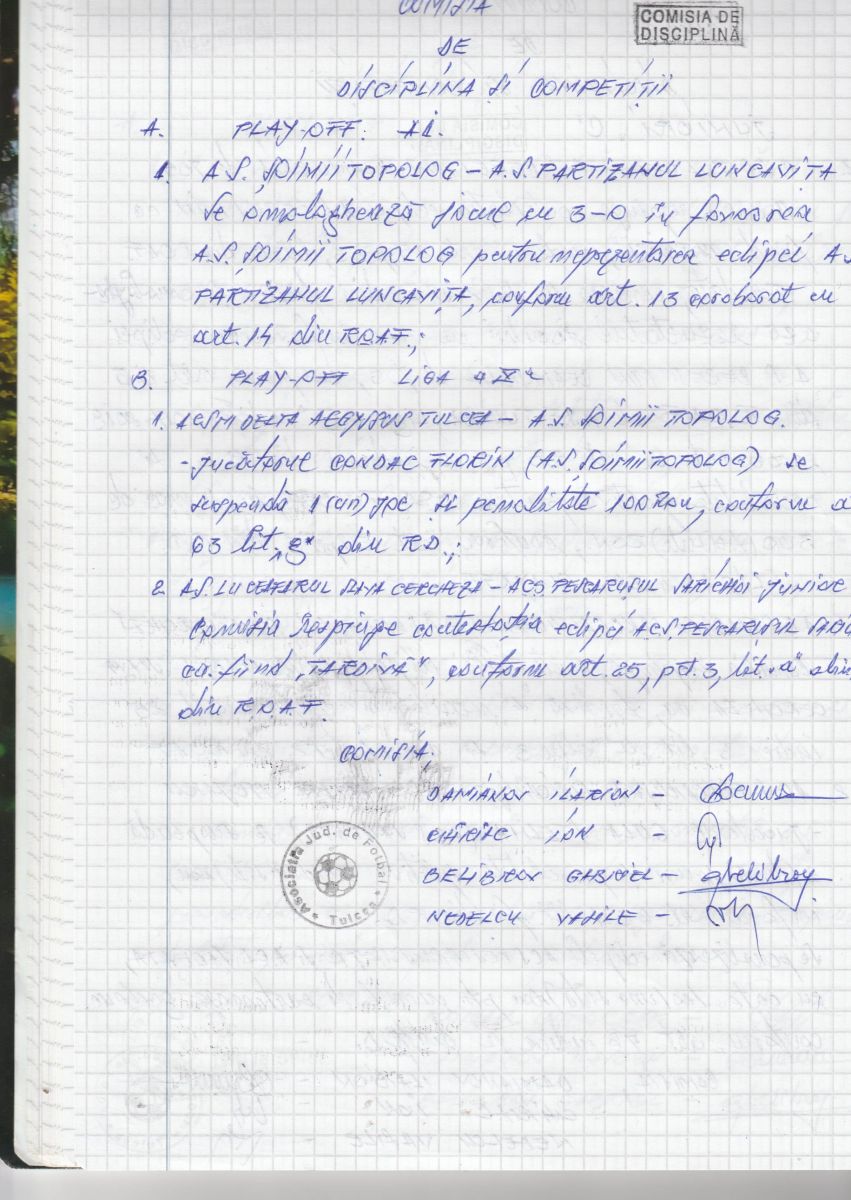 COMISIA
COMISIA DE
DISCIPLINĂ
DE
DISCIPLINA ȘI COMPETIȚII
A. PLAY-OFF:
1. A.S. ȘOIMII TOPOLOG – A.S. PARTIZANUL LUNCAVIȚA
Se omologhează jocul cu 3-0 în favoarea
A.S. ȘOIMII TOPOLOG pentru neprezentarea echipei A.S
PARTIZANUL LUNCAVIȚA, conform art. 13 coroborat cu
art. 14 din R.O.A.F.;
B. PLAY-OFF LIGA
1. ACSM DELTA AEGYSSUS TULCEA – A.S. ȘOIMII TOPOLOG.
- jucătorul CONDAC FLORIN (A.S. ȘOIMII TOPOLOG) se
suspendă 1 (un) joc și penalitate 100 RON, conform a
63 lit. „g" din R.D.;
2. A.S. LUCEAFARUL SLAVA CERCHEZA – ACS PESCARUȘUL SARICHIOI JUNIOR
Comisia Respinge contestația echipei ACS. PESCARUȘUL SARIC
ca fiind „TARDIVĂ", conform art. 85, pct. 3, lit. „a" din
din R.O.A.F.
COMISIA,
DAMIANOV ILARION –
CHIRIAC ION –
BELIBROV GABRIEL –
NEDELCU VASILE –
Asociatia Jud. de Fotbal
* Tulcea *